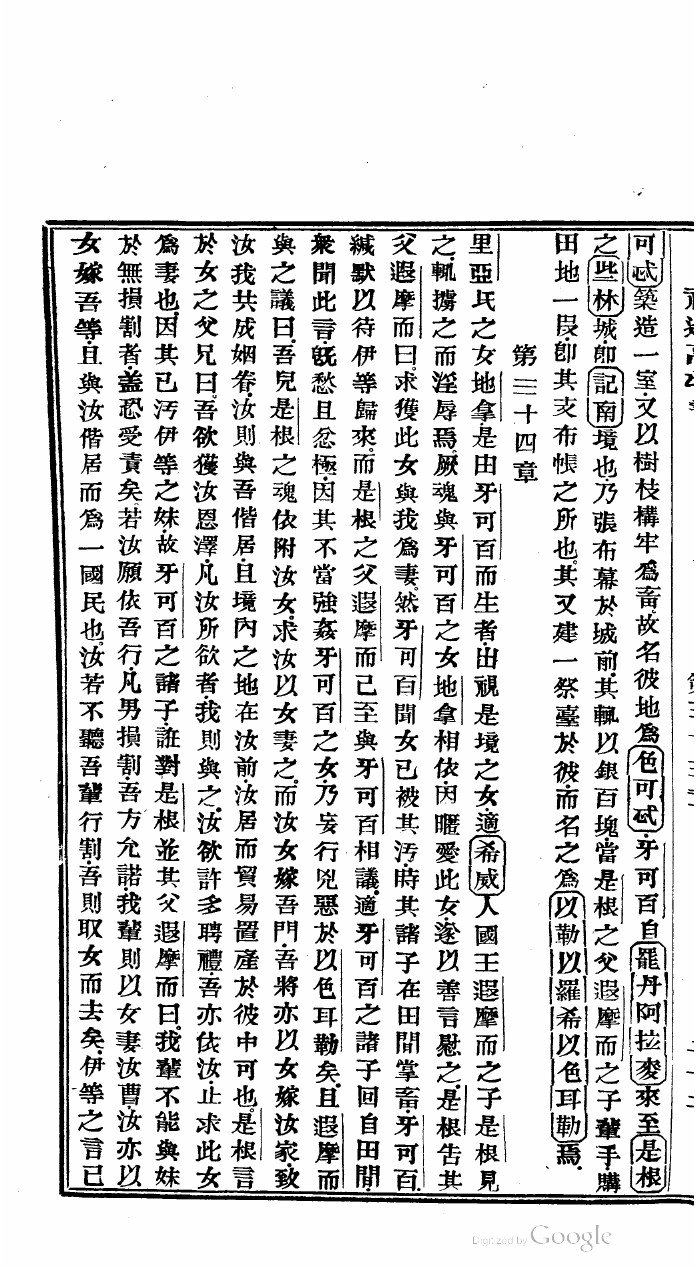 可忒築造一室又以樹枝構牢爲畜故名彼地爲色可忒牙可百自罷丹阿拉麥來至是根
之些林城卽記南境也乃張布幕於城前其輒以銀百塊當是根之父遐摩而之子輩手購
田地一段卽其支布帳之所也其又建一祭臺於彼而名之爲以勒以羅希以色耳勒焉
第三十四章
里亞氏之女地拿是由牙可百而生者出視是境之女適希威人國王遐摩而之子是根見
之輒擄之而淫辱焉厥魂與牙可百之女地拿相依因暱愛此女遂以善言慰之是根告其
父遐摩而曰求獲此女與我爲妻然牙可百聞女已被其汚時其諸子在田間掌畜牙可百
緘默以待伊等歸來而是根之父遐摩而已至與牙可百相議適牙可百之諸子回自田間
衆聞此言旣愁且忿極因其不當強姦牙可百之女乃妄行兇惡於以色耳勒矣且遐摩而
與之議曰吾兒是根之魂依附汝女求汝以女妻之而汝女嫁吾門吾將亦以女嫁汝家致
汝我共成姻眷汝則與吾偕居且境內之地在汝前汝居而貿易置產於彼中可也是根言
於女之父兄曰吾欲獲汝恩澤凡汝所欲者我則與之汝欲許多聘禮吾亦依汝止求此女
爲妻也因其已汚伊等之妹故牙可百之諸子誑對是根並其父遐摩而曰我輩不能與妹
於無損割者蓋恐受責矣若汝願依吾行凡男損割吾方允諾我輩則以女妻汝曹汝亦以
女嫁吾等且與汝偕居而爲一國民也汝若不聽吾輩行割吾則取女而去矣伊等之言己
Digitized by Google